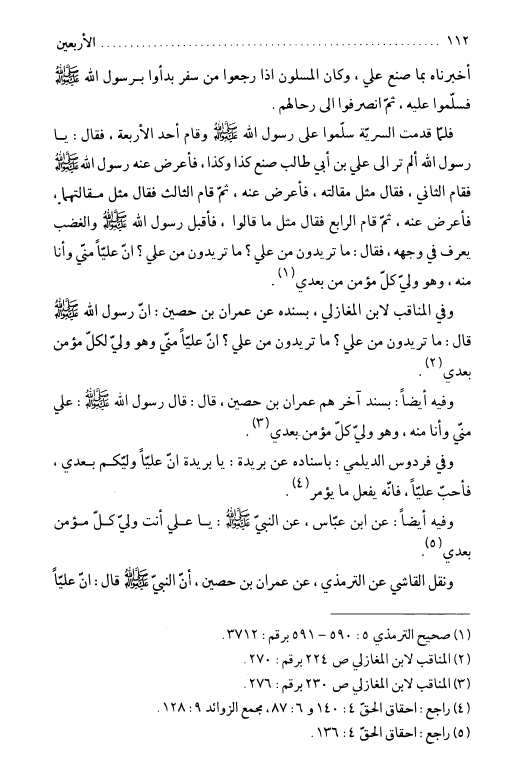 ١١٢ ........................................................ الأربعين
أخبرناه بما صنع علي ، وكان المسلون اذا رجعوا من سفر بدأوا بـرسول الله ﷺ
فسلّموا عليه ، ثمّ انصرفوا الى رحالهم .
فلمّا قدمت السريّة سلّموا على رسول الله ﷺ وقام أحد الأربعة ، فقال : يـا
رسول الله ألم تر الى علي بن أبي طالب صنع كذا وكذا ، فأعرض عنه رسول الله ﷺ
فقام الثاني ، فقال مثل مقالته ، فأعرض عنه ، ثمّ قام الثالث فقال مثل مـقالتهما ،
فأعرض عنه ، ثمّ قام الرابع فقال مثل ما قالوا ، فأقبل رسول الله ﷺ والغضب
يعرف في وجهه ، فقال : ما تريدون من علي ؟ ما تريدون من علي ؟ انّ عليّاً منّي وأنا
منه ، وهو وليّ كلّ مؤمن من بعدي(١) .
وفي المناقب لابن المغازلي ، بسنده عن عمران بن حصين : انّ رسول الله ﷺ
قال : ما تريدون من علي ؟ ما تريدون من علي ؟ انّ عليّاً منّي وهو وليّ لكلّ مؤمن
بعدي(٢) .
وفيه أيضاً : بسند آخر هم عمران بن حصين ، قال : قال رسول الله ﷺ : علي
منّي وأنا منه ، وهو وليّ كلّ مؤمن بعدي(٣) .
وفي فردوس الديلمي : باسناده عن بريدة : يا بريدة انّ عليّاً وليّكـم بـعدي ،
فأحبّ عليّاً ، فانّه يفعل ما يؤمر(٤) .
وفيه أيضاً : عن ابن عبّاس ، عن النبيّ ﷺ : يـا عـلي أنت وليّ كـلّ مـؤمن
بعدي(٥).
ونقل القاشي عن الترمذي ، عن عمران بن حصين ، أنّ النبيّ ﷺ قال : انّ عليّاً
(١) صحيح الترمذي ٥ : ٥٩٠ – ٥٩١ برقم : ٣٧١٢.
(٢) المناقب لابن المغازلي ص ٢٢٤ برقم : ٢٧٠ .
(٣) المناقب لابن المغازلي ص ٢٣٠ برقم : ٢٧٦ .
(٤) راجع : احقاق الحقّ ٤ : ١٤٠ و ٦ : ٨٧ ، مجمع الزوائد ٩ : ١٢٨ .
(٥) راجع : احقاق الحقّ ٤ : ١٣٦ .